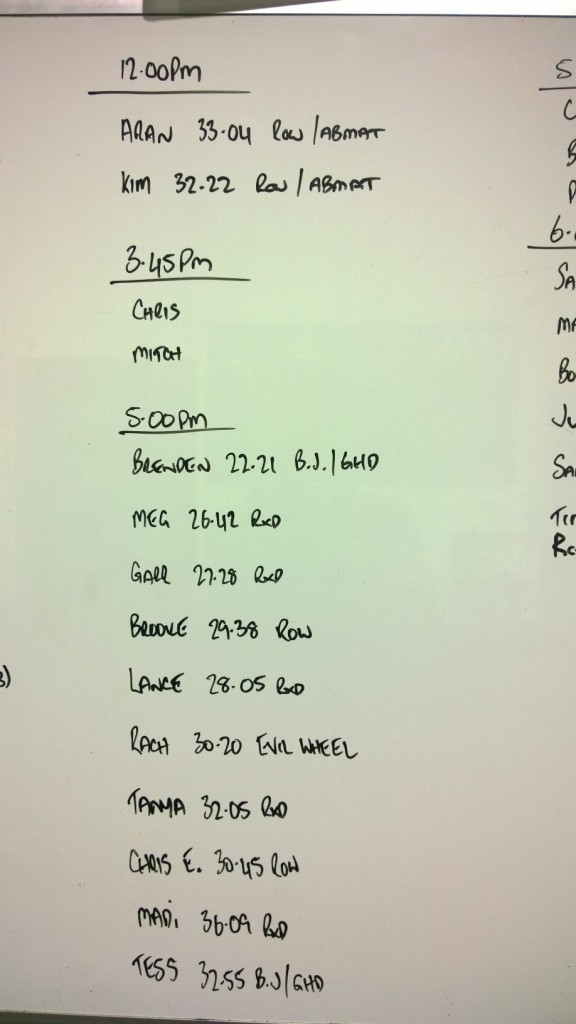 12.00pm
ARAN 33.04 ROW/ABMAT
KIM 32.22 ROW/ABMAT
3.45pm
CHRIS
MITCH
5.00pm
BRENDEN 22.21 B.J./GHD
MEG 26.42 RXD
27.28 RXD
BROOKE 29.38 ROW
LANCE 28.05 RXD
RACH 30.20 EVIL WHEEL
TANYA 32.05 RXD
CHRIS E. 30.45 ROW
MADI 36.09 RXD
TESS 32.55 B.J/GHD